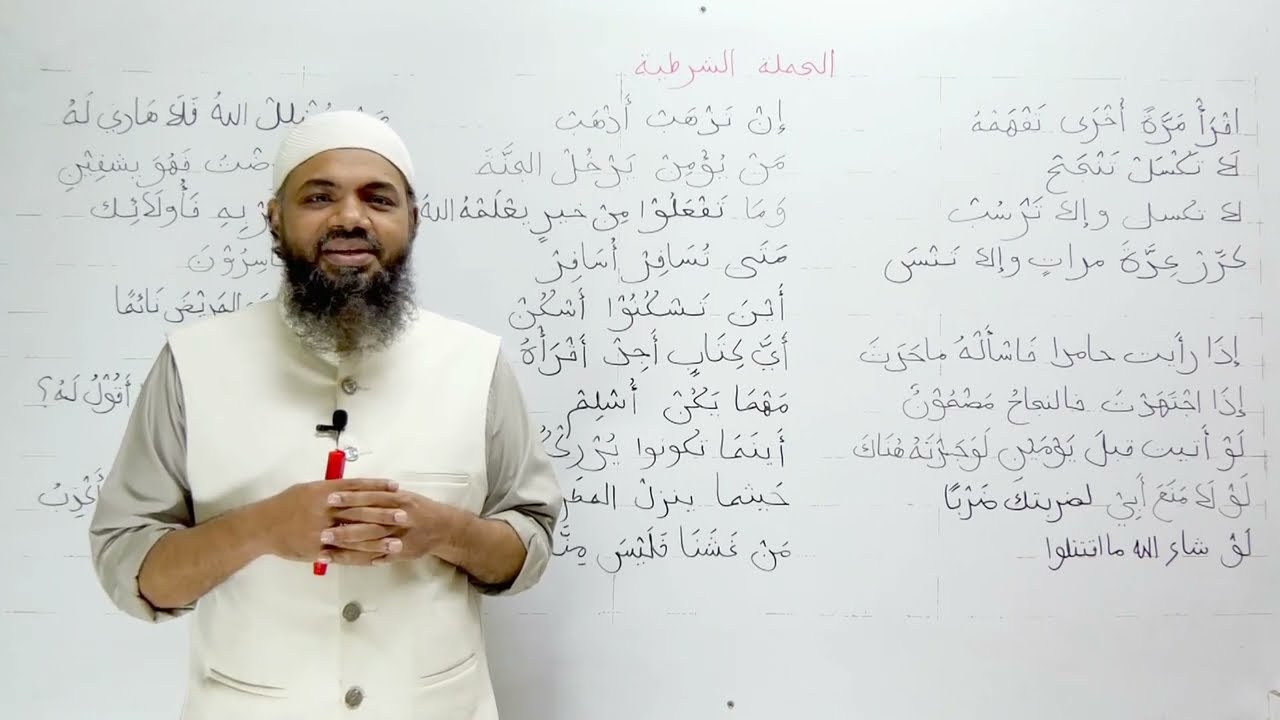 الجملة الشرطية
اقْرَأْ مَرَّةً أُخْرَى تَفْهَمْهُ
لَا تَكْسَلْ تَنْجَحْ
لا تكسل وإلا تَرْسُبْ
كَرِّرْ عِدَّةَ مراتٍ وإلا تَنْسَ
إِذَا رأيت حامدا فَاسْأَلْهُ
إِذَا اجْتَهَدْتَ فالنجاحُ مَضْمُوْنٌ
لَوْ أتيت قبلَ يَوْمَيْنِ لَوَجَدْتَهُ هُنَاكَ
لَوْ لَا مَنَعَ أَبِيْ لضربتكَ ضَرْبًا
لَوْ شاء الله مااقتتلوا
إِنْ تَذْهَبْ أَذْهَبْ
مَنْ يُؤْمِنْ يَدْخُلْ الجَنَّةَ
وَمَا تَفْعَلُوْا مِنْ خيرٍ يعْلَمْهُ اللهُ
مَتَى تُسَافِرْ أُسَافِرْ
أَيْنَ تَسْكُنُوْا أَسْكُنْ
أَيَّ كِتَابٍ أَجِدْ أَقْرَأْهُ
مَهْمَا يَكُنْ أُسْلِمْ
أَينَمَا تكونوا
حَيثما ينزلْ
مَنْ غَشَّنَا فَلَيْسَ
اللهُ فَلَا هَادِيَ لَهُ
فَهُوَ يشفِيْنِ
بِهِ فَأُولَائِكَ
المَرِيْضَ نَائِمًا
أَقُوْلُ لَهُ؟